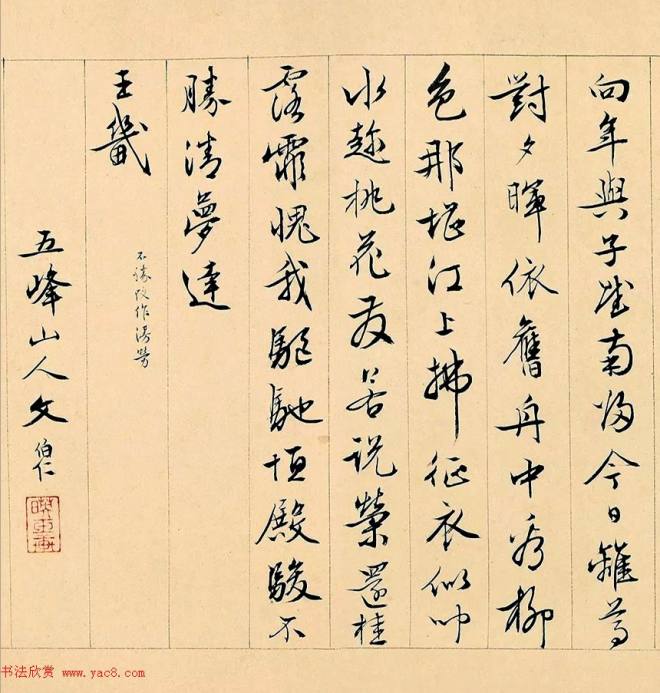 向年與子賦南歸今日離尊
對夕暉依舊舟中看柳
色那堪江上拂征衣似
水趁桃花發若說榮還桂
露霏愧我驅馳恒殿駿不
勝清夢達
王畿
不改作
五峰山人文伯仁
书法欣赏 www.yac8.com